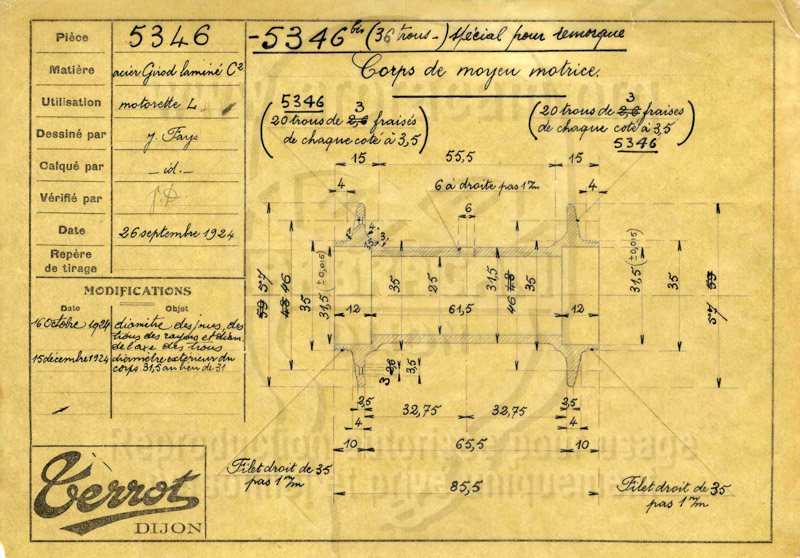 Pièce
5346
Matière
acier Girod laminé C²
Utilisation
motorette L
Dessiné par
J. Fays
Calqué par
- id. -
Vérifié par
Date
26 septembre 1924
Repère
de tirage
MODIFICATIONS
Date Objet
16 octobre 1924 diamètre des joues, des
trous des rayons et diam.
de l'axe des trous
15 décembre 1924 diamètre extérieur du
corps 31,5 au lieu de 31
Terrot
DIJON
-5346 bis (36 trous-) spécial pour remorque
Corps de moyeu motrice.
5346
3
20 trous de 2,6 fraisés
de chaque coté à 3,5
3
20 trous de 2,6 fraisés
de chaque coté à 3,5
5346
15 55,5 15
4 6 à droite pas 1 m/m 4
6
59 57 48 46 35 31,5 (±0,015) 35 25 31,5 46 48 35 35 31,5 (±0,015) 35 57 59
12 61,5 12
3 2,6 3,5
2,5 32,75 32,75 2,5
4 4
10 65,5 10
85,5
Filet droit de 35
pas 1 m/m
Filet droit de 35
pas 1 m/m
Reproduction autorisée pour usage